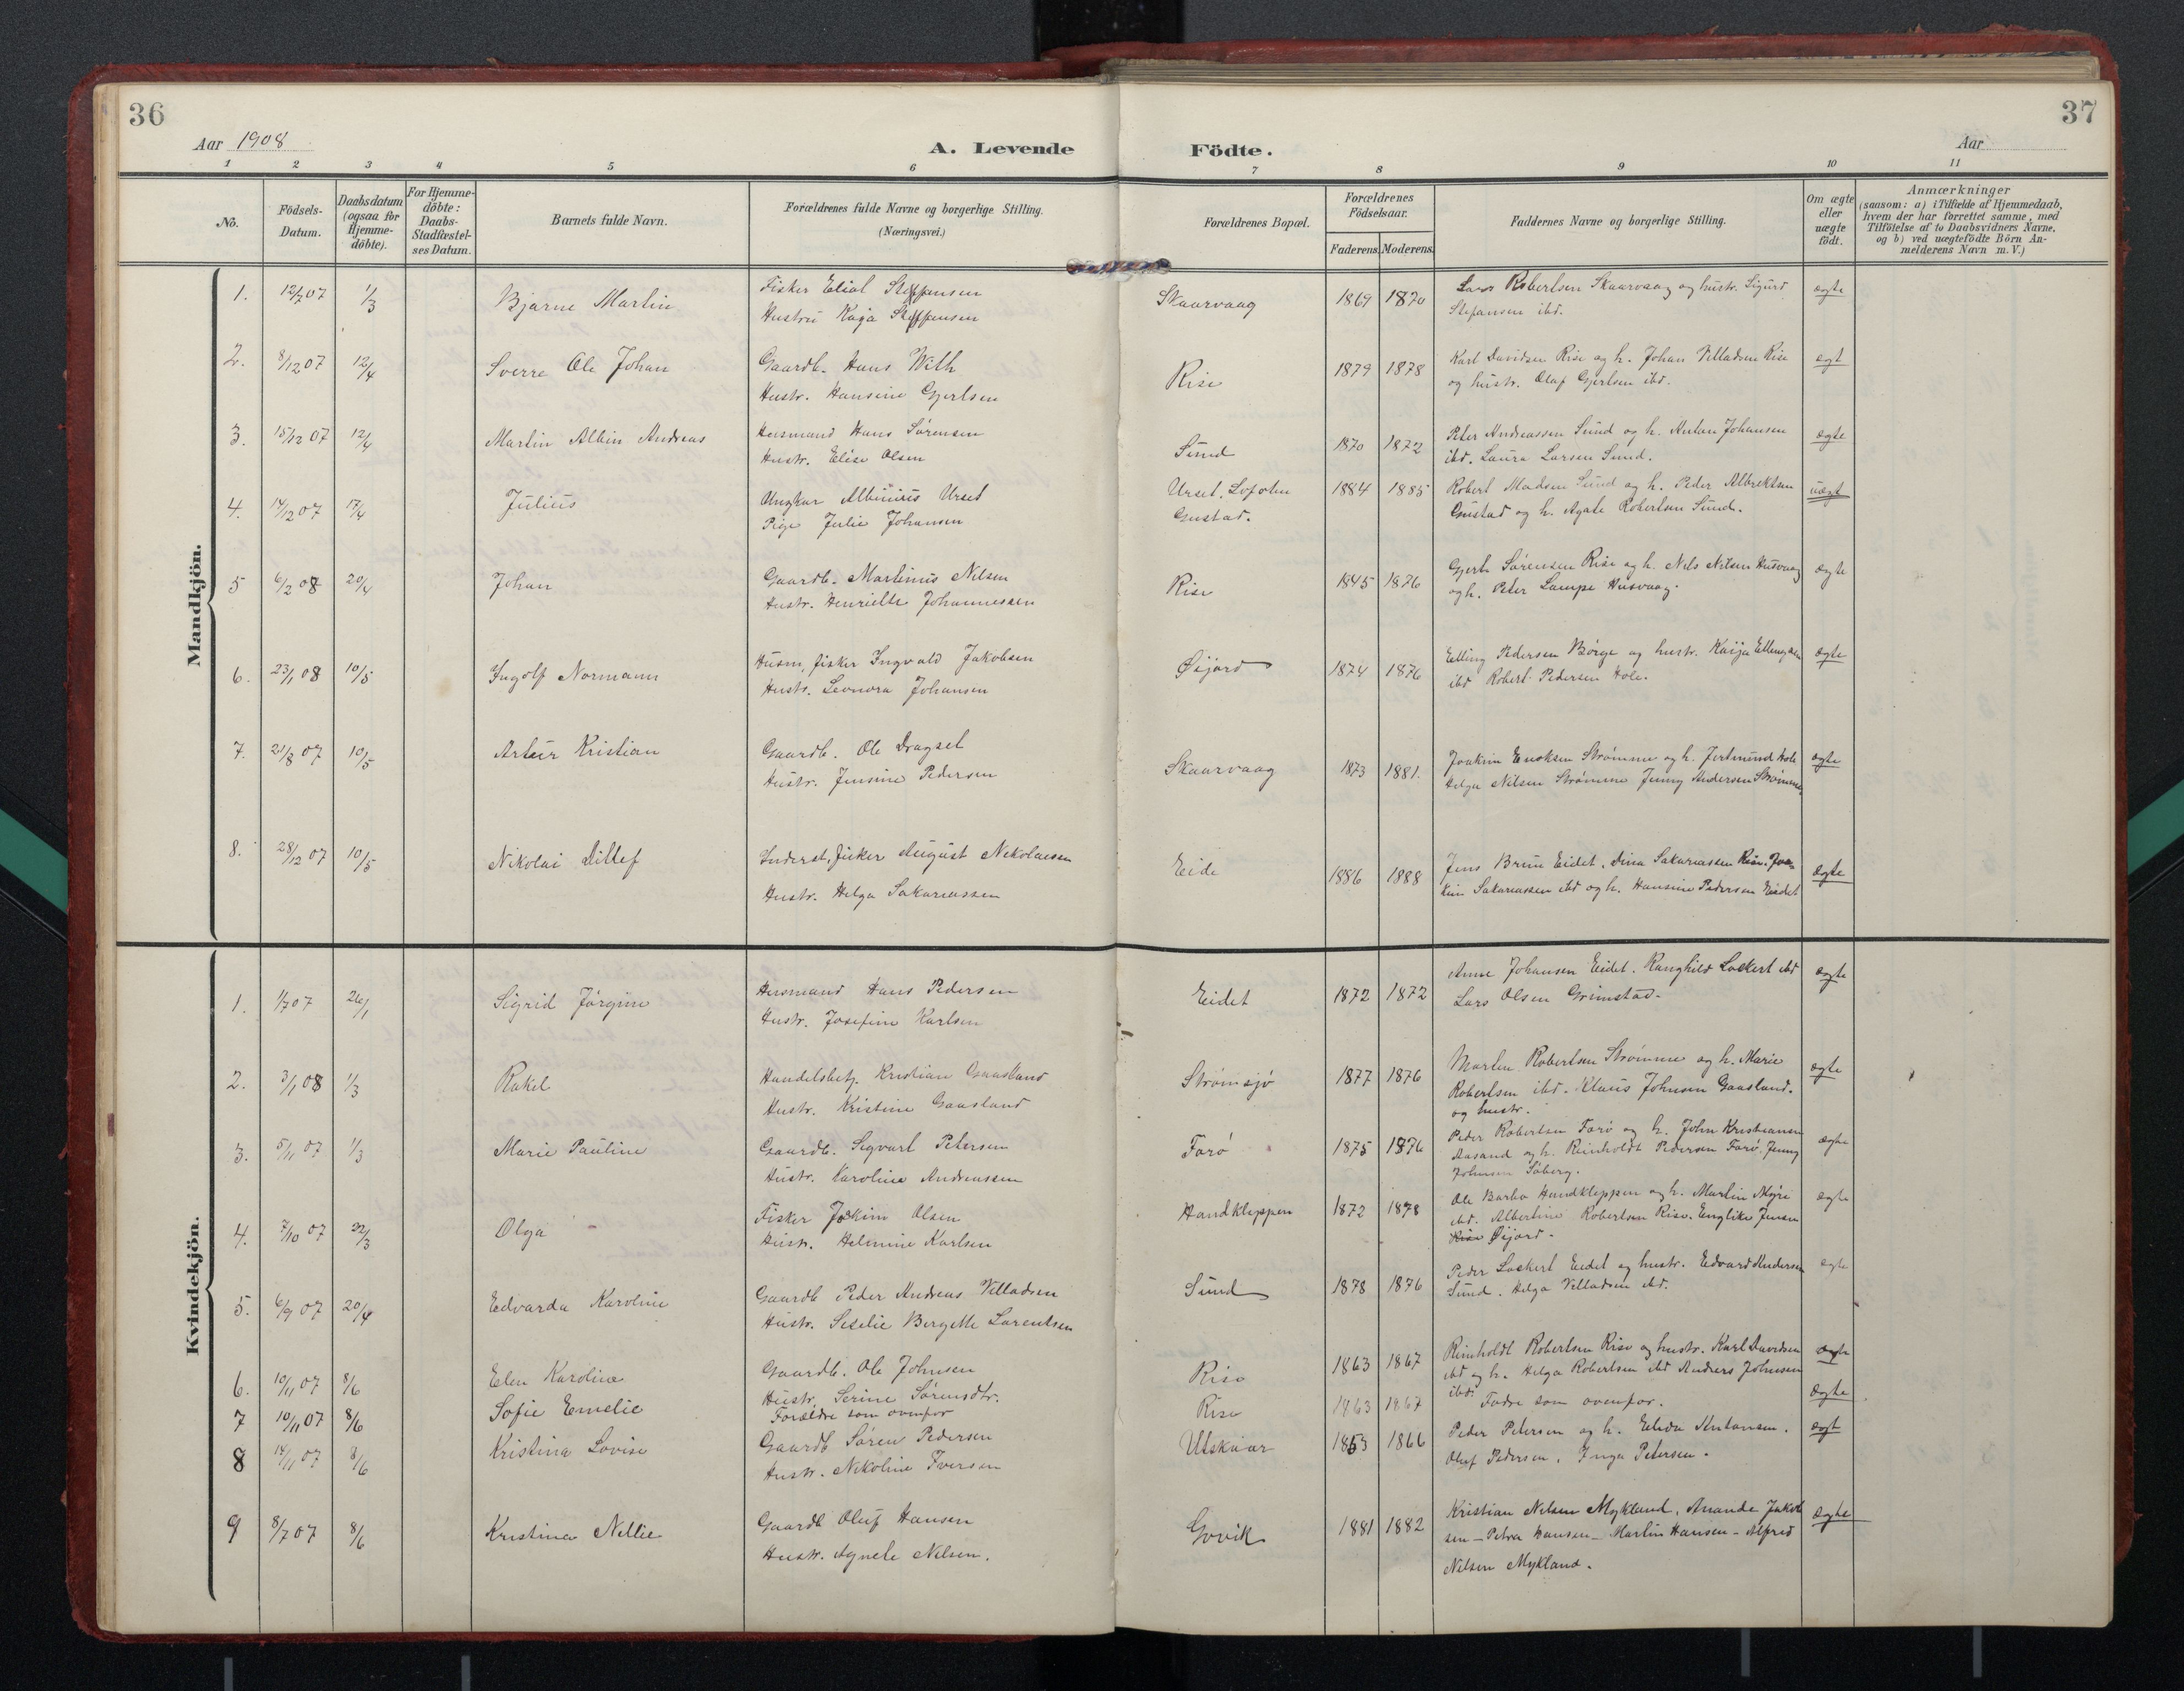 36
37
Aar 1908
A. Levende Födte.
Aar
1 2 3 4 5 6 7 8 9 10 11
No.
Födsels-Datum.
Daabsdatum (ogsaa for Hjemme-döbte).
For Hjemme-döbte: Daabs-Stadfæstel-ses Datum.
Barnets fulde Navn.
Forældrenes fulde Navne og borgerlige Stilling.
(Næringsvei.)
Forældrenes Bopæl.
Forældrenes Födselsaar.
Faderens. Moderens.
Faddernes Navne og borgerlige Stilling.
Om ægte eller uægte födt.
Anmærkninger
(saasom: a) i Tilfælde af Hjemmedaab,
hvem der har forrettet samme, med
Tilföielse af to Daabsvidners Navne,
og b) ved uægtefödte Börn An-
melderens Navn m. V.)
Mandkjön.
1. 12/7 07 1/3 Bjarne Martin Fisker Eliol Steffensen Skaarvaag 1869 1870 Robertsen Skaarvaag og hustr. Sigurd ægte
Hustru Kaja Steffensen Stefansen ibd.
2. 8/12 07 12/4 Sverre Ole Johan Gaardb. Hans With Rise 1879 1878 Karl Davidsen Rise og h. Johan Villadsen Rise ægt
Hustr. Hansine Gjertsen og hustr. Olaf Gjertsen ibd.
3. 15/12 07 12/4 Martin Albin Andreas Husmand Hans Sørensen Sund 1870 1872 Peter Andreassen Sund og h. Anton Johansen ægte
Hustr. Elise Olsen ibd. Laura Larsen Sund.
4. 14/12 07 17/4 Julius Ungkar Albinius Urset Urset, Lofoten 1884 1885 Robert Madsen Sund og h. Peder Albrektsen uægt
Pige Julie Johansen Gustad. Gustad og h. Agate Robertsen Sund.
5 6/2 08 20/4 Johan Gaardb. Martinus Nilsen Rise 1845 1876 Gjert Sørensen Rise og h. Nels Nilsen Husvaag ægte
Hustr. Henriette Johannessen og h. Peter Lampe Husvaag.
6. 23/1 08 10/5 Ingolf Normann Husm, fisker Ingvald Jakobsen Øijord 1874 1876 Elling Pedersen Børge og hustr. Kaija Ellingsen ægte
Hustr. Leonora Johansen ibd Robert Pedersen Hole.
7. 21/8 07 10/5 Artur Kristian Gaardb. Ole Dragset Skaarvaag 1873 1881. Joakim Enoksen Strømme og h. Jertmund Hole ægte
Hustr. Jensine Pedersen Helga Nilsen Strømme Jenny Andersen Strømme,
8. 28/12 07 10/5 Nikolai Ditlef Inderst, fisker August Nikolaisen Eide 1886 1888 Jens Brun Eidet. Dina Sakariassen Rise. Joa- ægte
Hustr. Helga Sakariassen kim Sakariassen ibd og h. Hansine Pedersen Eidet
Kvindekjön.
1. 1/7 07 26/1 Sigrid Jørgine Husmand Hans Pedersen Eidet 1872 1872 Anne Johansen Eidet. Ranghild Lockert ibd ægte
Hustr. Josefine Karlsen Lars Olsen Grimstad.
2. 3/1 08 1/3 Rakel Handelsbetj. Kristian Gaasland Strømsjø 1877 1876 Morten Robertsen Strømme og h. Marie ægte
Hustr. Kristine Gaasland Robertsen ibd. Klaus Johnsen Gaasland.
og hustr.
3. 5/11 07 1/3 Marie Pauline Gaardb. Sigvart Petersen Farø 1875 1876 Peder Robertsen Farø og h. John Kristiansen ægte
Hustr. Karoline Andreassen Aasand og h. Reinholdt Pedersen Farø. Jenny
Johnsen Søberg.
4. 7/10 07 22/3 Olga Fisker Joakim Olsen Handkleppen 1872 1878 Ole Barbo Handkleppen og h. Martin Myre ægte
Hustr. Helmine Karlsen ibd. Albertine Robertsen Rise. Englike Jensen
Rise Øijord.
5. 6/9 07 20/4 Edvarda Karoline Gaardb Peder Andreas Villadsen Sund 1878 1876 Peder Lockert Eidet og hustr. Edvard Andersen ægte
Hustr. Seselie Bergette Lorentsen Sund. Helga Villadsen ibd.
6. 10/11 07 8/6 Elen Karoline Gaardb. Ole Johnsen Rise 1863 1867 Reinholdt Robertsen Rise og hustr. Karl Davidsen ægte
Hustr. Serine Sørensdtr. ibd og h. Helga Robertsen ibd Anders Johnsen
ibd.
7 10/11 07 8/6 Sofie Emelie Forældre som ovenfor Rise 1863 1867 Fadre som ovenfor. ægte
8 14/11 07 8/6 Kristina Lovise Gaardb Søren Pedersen Utskaar 1853 1866 Peder Petersen og h. Elida Antonsen. ægt
Hustr. Nikoline Iversen Oluf Pedersen, Inga Petersen.
9 8/7 07 8/6 Kristina Nellie Gaardb Oluf Hansen Govik 1881 1882 Kristian Nilsen Mykland, Ananda Jakob ægte
Hustr. Agnete Nilsen. sen - Petra Hansen - Martin Hansen - Alfred
Nilsen Mykland.